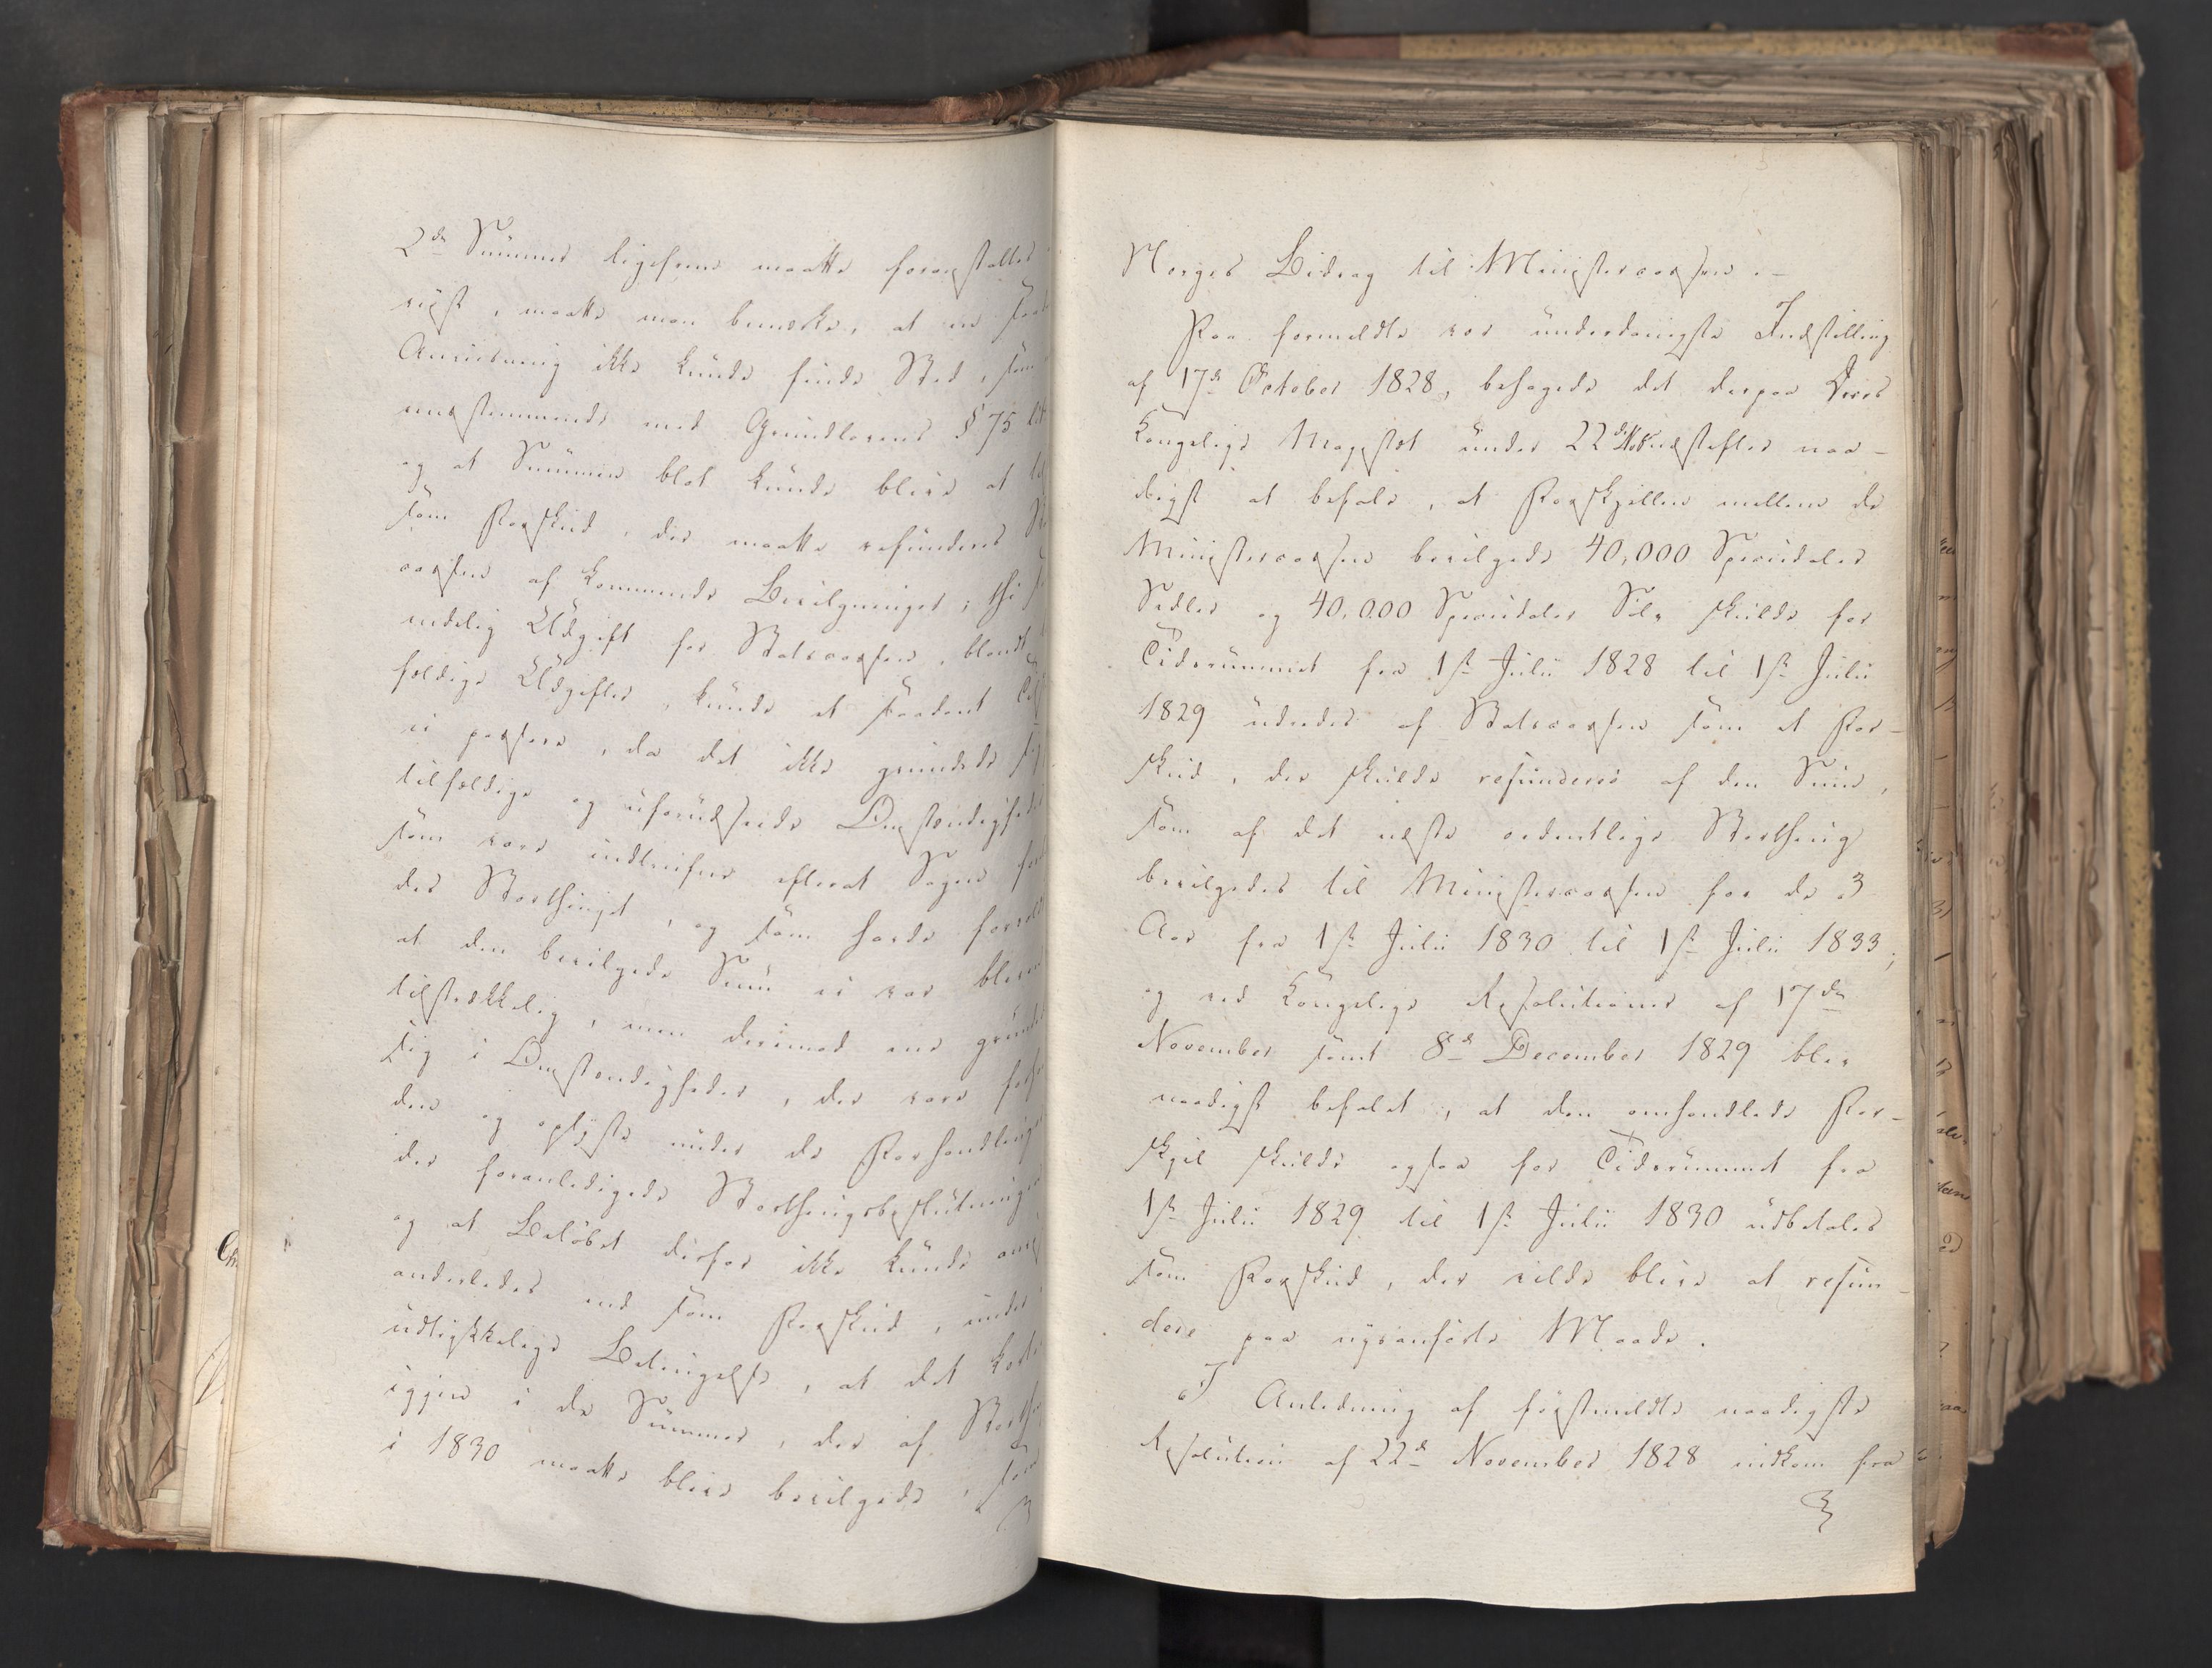 2de Summer ligesom maatte foranstaltes
, maatte man bemærke, at en saadan
Anviisning ikke kunde finde Sted, som
uoverstemmende med Grundlovens § 75 litr
og at Summen blot kunde blive at
som Forskud, der maatte refunderes
cassen af kommende Bevilgninger; thi
endelig Udgift for Statscassen, blandt
fældige Udgifter, kunde et saadant
ei passere, da det ikke grundede sig
tilfældige og uforudseede Omstændigheder
som vare indtrufne efterat Sagen
det Storthinget, og som havde
at den bevilgede Sum ei var bleven
tilstrækkelig, men derimod
sig i Omstændigheder, der vare
den og oplyste under de Forhandlinger
der foranledigede Storthingsbeslutningen
og at Beløbet derfor ikke kunde
anderledes end som Forskud, under
udtrykkelige Betingelse, at det
igjen i de Summer, der af
i 1830 maatte blive bevilgede, som
Norges Bidrag til Ministercassen.-
Paa formeldte vor underdanigste Indstilling
af 17de October 1828, behagede det derpaa Deres
Kongelige Majestæt under 22de Novbr næstefter naa-
digst at befale, at Forskjellen mellem de
Ministercassen bevilgede 40,000 Speciedaler
Sedler og 40,000 Speciedaler Sølv skulde for
Tidsrummet fra 1ste Julii 1828 til 1ste Julii
1829 udredes af Statscassen som et For-
skud, der skulde refunderes af den Sum,
som af det næste ordentlige Storthing
bevilgedes til Ministercassen for de 3
Aar fra 1ste Julii 1830 til 1ste Julii 1833;
og ved Kongelige Resolutioner af 17de
November samt 8de December 1829 blev
naadigst befalet, at den omhandlede For-
skjel skulde ogsaa for Tidsrummet fra
1ste Julii 1829 til 1ste Julii 1830 udbetales
som Forskud, der vilde blive at refun-
dere paa nysanførte Maade.
I Anledning af førstmeldte naadigste
Resolution af 22de November 1828 indkom fra